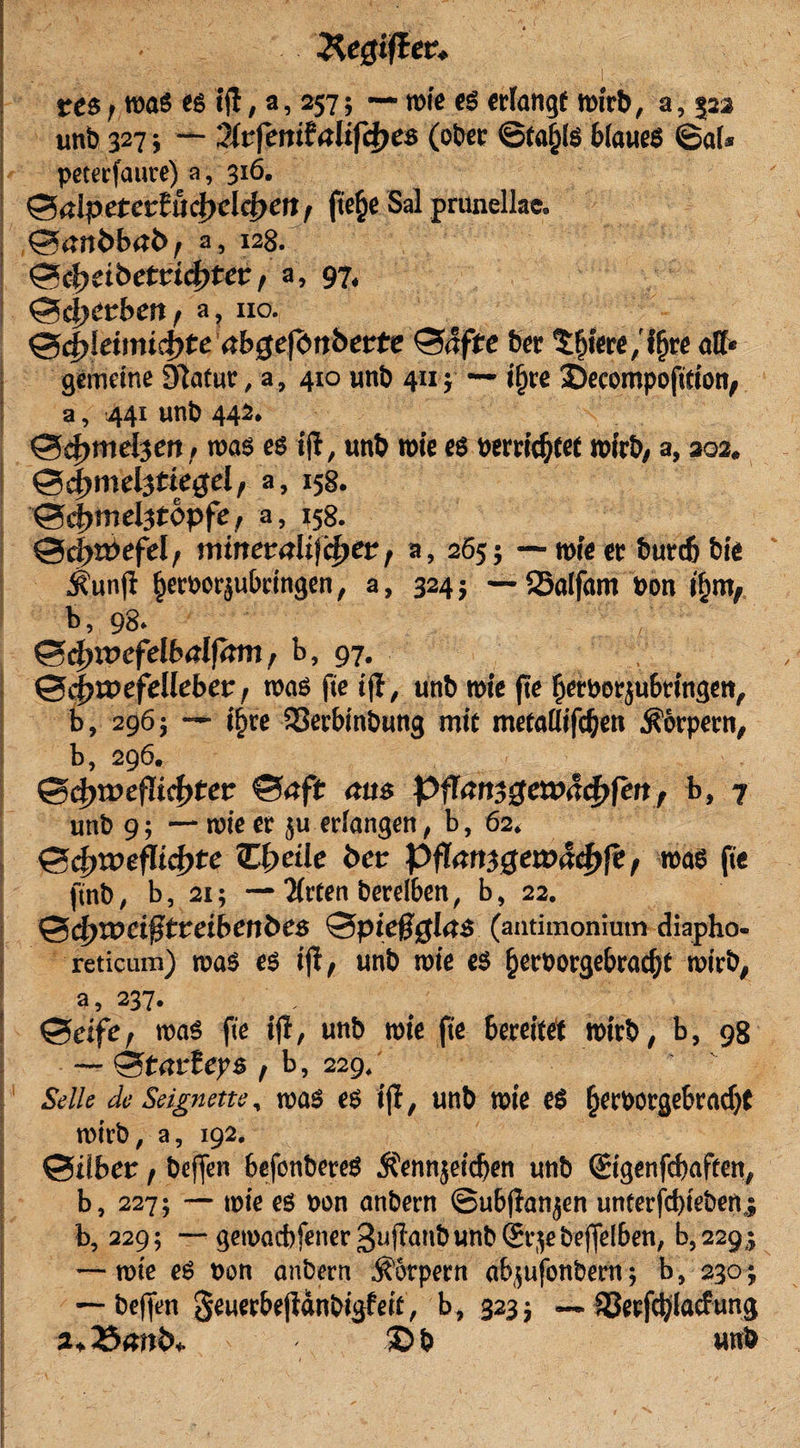 Register.
res, was es ist, a, 257; — wie es erlangt wird, a, 322
und 327; — Arsenikalisches (oder Stahls blaues Sal-
petersaure) a, 316.
Salpeterküchelchen, siehe Sal prunellae.
Sandbad, a, 128.
Scheidetrichter, a, 97.
Scherben, a, 110.
Schleimichte abgesönderte Säfte der Thiere, ihre all-
gemeine Natur, a, 410 und 411; — ihre Decomposition,
a, 441 und 442.
Schmelzen, was es ist, und wie es verrichtet wird, a, 202.
Schmelztiegel, a, 158.
Schmelztöpfe, a, 158.
Schwefel, mineralischer, a, 265; — wie er durch die
Kunst hervorzubringen, a, 324; — Balsam von ihm,
b, 98.
Schwefelbalsam, b, 97.
Schwefelleber, was sie ist, und wie sie hervorzubringen,
b, 296; — ihre Verbindung mit metallischen Körpern,
b, 296.
Schweflichter Saft aus Pflanzgewächsen, b, 7
und 9; — wie er zu erlangen, b, 62.
Schweflichte Theile der Pflanzgewächse, was sie
sind, b, 21; — Arten derelben, b, 22.
Schweißtreibendes Spießglas (antimonium diapho-
reticum) was es ist, und wie es hervorgebracht wird,
a, 237.
Seife, was sie ist, und wie sie bereitet wird, b, 98
— Starkeys, b, 229.
Selle de Seignette, was es ist, und wie es hervorgebracht
wird, a, 192.
Silber, dessen besonderes Kennzeichen und Eigenschaften,
b, 227; — wie es von andern Substanzen unterschieden;
b, 229; — gewachsener Zustand und Erze desselben, b, 229;
— wie es von andern Körpern abzusondern; b, 230;
— dessen Feuerbeständigkeit, b, 323; — Verschlackung
2. Band. Dd und